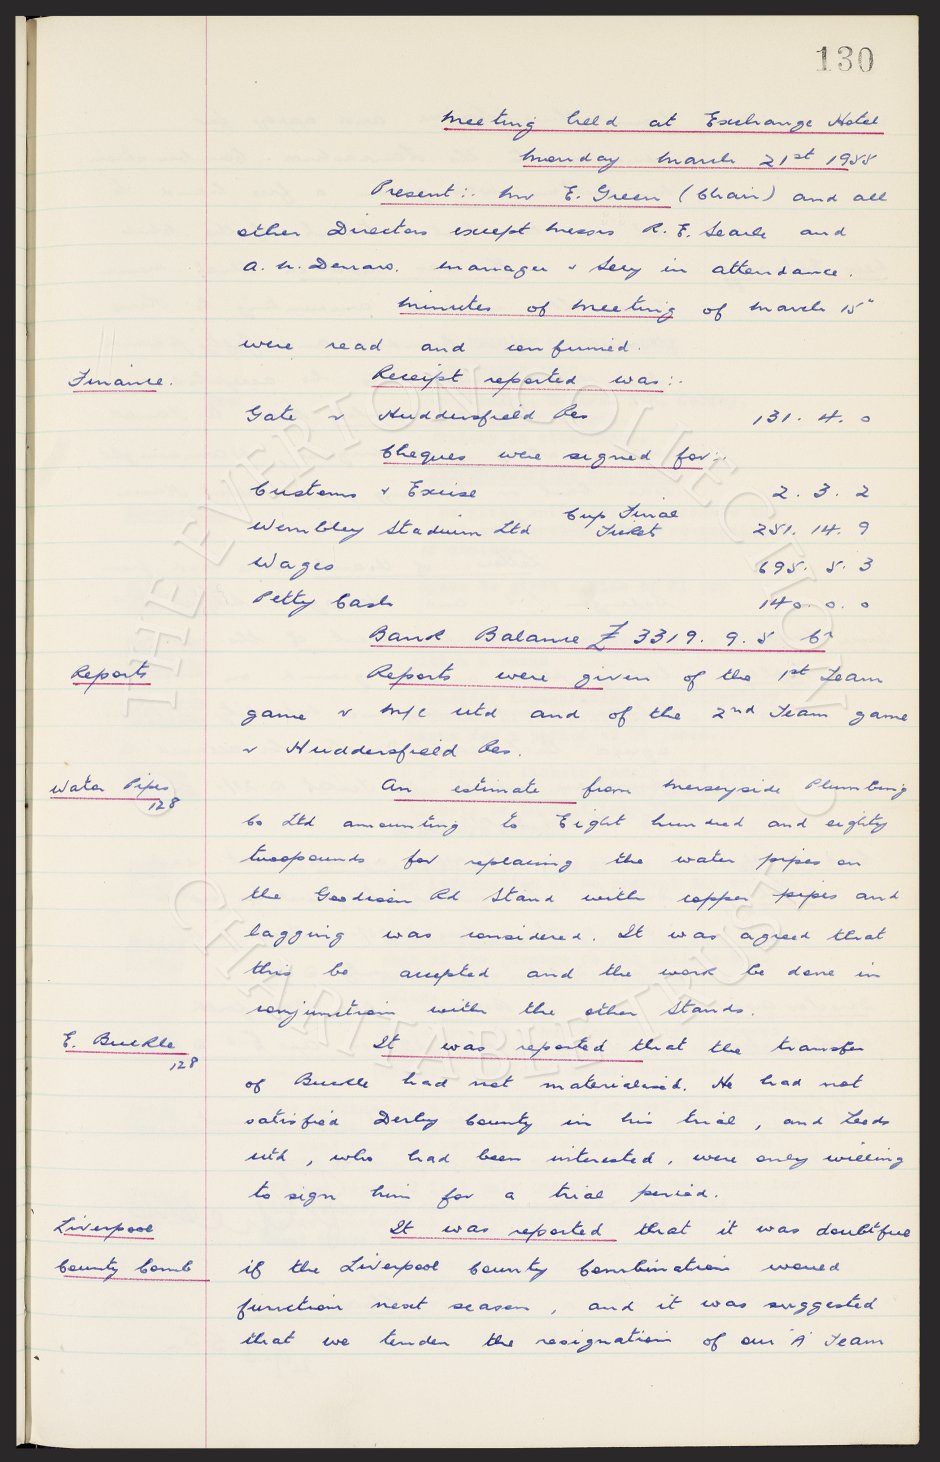 130
Meeting held at Exchange Hotel
Monday March 21st 1955
Present:- Mr E. Green (Chair) and all
other Directors except Messrs R. E. Searle and
A. N. Denaro. Manager & Secy in attendance.
Minutes of Meeting of March 15"
were read and confirmed.
Finance. Receipt reported was:-
Gate v Huddersfield Res 131. 4. 0
Cheques were signed for:-
Customs & Excise 2. 3. 2
Wembley Stadium Ltd Cup Final Tickets 251. 14. 9
Wages 695. 5. 3
Petty Cash 140. 0. 0
Bank Balance £ 3319. 9. 5 Cr
Reports Reports were given of the 1st Team
game v M/c Utd and of the 2nd Team game
v Huddersfield Res.
Water Pipes 128 An estimate from Merseyside Plumbing
Co Ltd amounting to Eight hundred and eighty
twopounds for replacing the water pipes on
the Goodison Rd Stand with copper pipes and
lagging was considered. It was agreed that
this be accepted and the work be done in
conjunction with the other Stands.
E. Buckle 128 It was reported that the transfer
of Buckle had not materialised. He had not
satisfied Derby County in his trial, and Leeds
Utd, who had been interested, were only willing
to sign him for a trial period.
Liverpool It was reported that it was doubtful
County Comb if the Liverpool County Combination would
function next season, and it was suggested
that we tender the resignation of our "A" Team
THE EVERTON COLLECTION
CHARITABLE TRUST